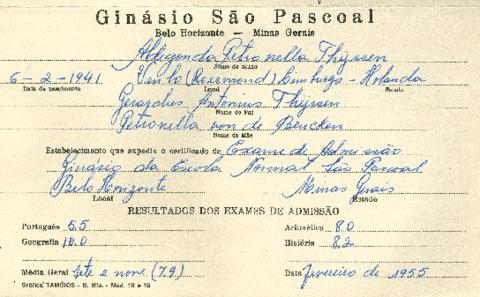 Ginásio São Pascoal
Belo Horizonte — Minas Gerais
Aldegonda Petronella Thijssen
Nome do aluno
6-2-1941 Venlo (Roermond) Limburgo - Holanda
Data do nascimento Local Estado
Gerardus Antonius Thijssen
Nome do Pai
Petronella von de Beucken
Nome da Mãe
Estabelecimento que expediu o certificado de Exame de Admissão
Ginásio da Escola Normal São Pascoal
Belo Horizonte Minas Gerais
Local Estado
RESULTADOS DOS EXAMES DE ADMISSÃO
Português 5.5 Aritmética 8.0
Geografia 10.0 História 8.2
Média Geral sete e nove (7.9) Data fevereiro de 1955
Gráfica TAMÓIOS - B. Hte. - Mod. 18 e 19